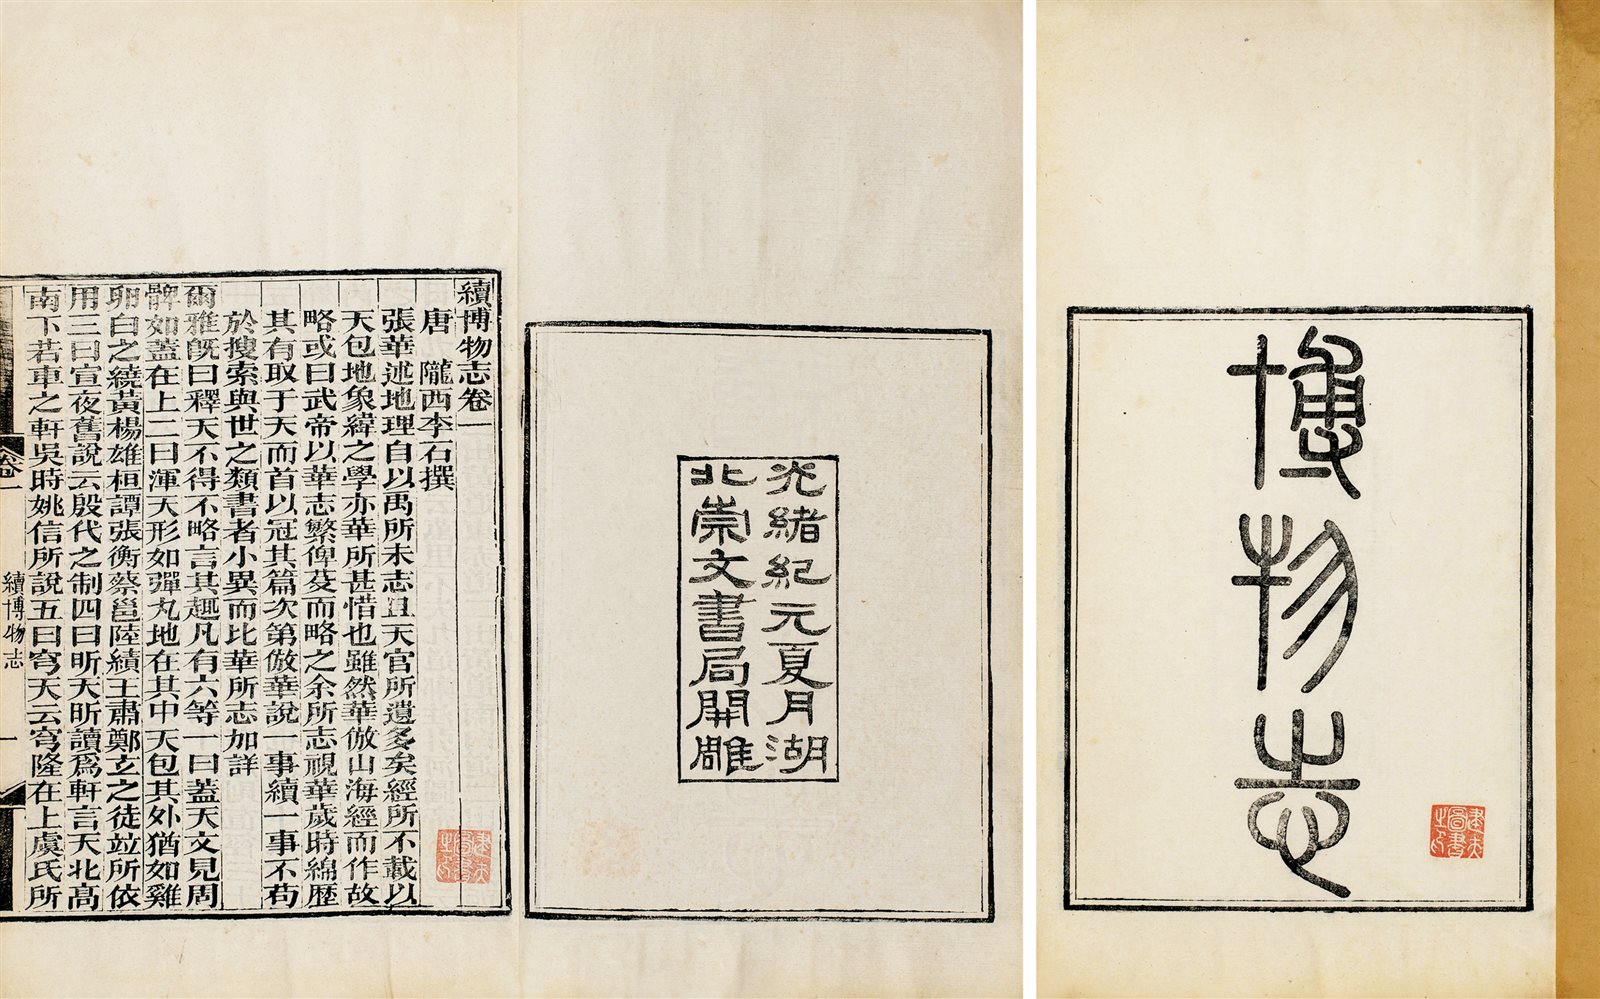 博物志
光緒紀元夏月湖
北崇文書局開雕
續博物志卷一
唐 隴西李石撰
張華述地理自以禹所未志且天官所遺多矣經所不載以
天包地象緯之學亦華所甚惜也雖然華倣山海經而作故
略或曰武帝以華志繁俾芟而略之余所志視華歲時綿歷
其有取于天而首以冠其篇次第倣華說一事續一事不苟
於搜索與世之類書者小異而比華所志加詳
爾雅旣曰釋天不得不略言其趣凡有六等一曰蓋天文見周
髀如蓋在上二曰渾天形如彈丸地在其中天包其外猶如雞
卵白之繞黃楊雄桓譚張衡蔡邕陸績王肅鄭玄之徒竝所依
用三曰宣夜舊說云殷代之制四曰昕天昕讀爲軒言天北高
南下若車之軒吳時姚信所說五曰穹天云穹隆在上虞氏所
卷一
續博物志
一